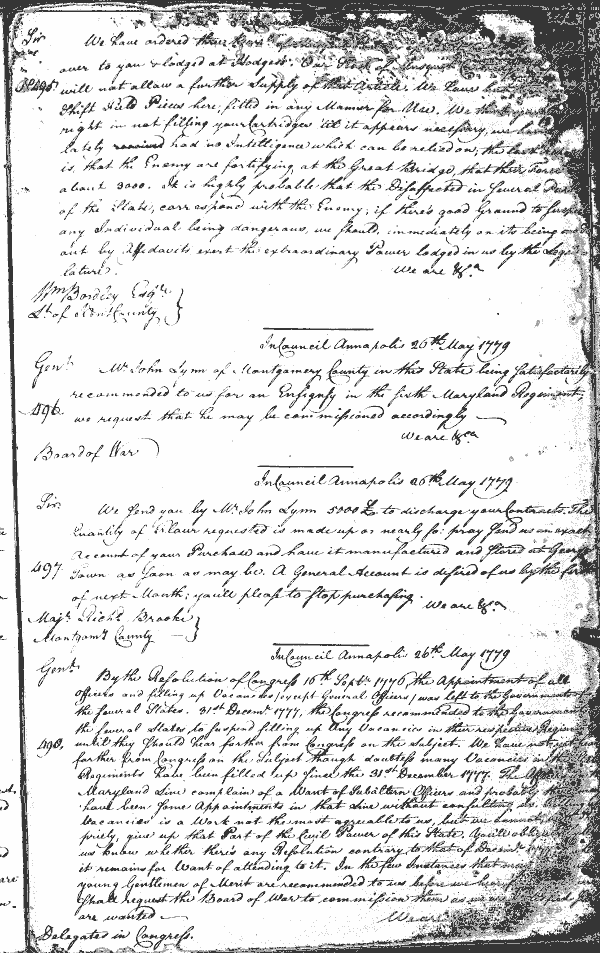 Sir
We have ordered three
over to you & lodged at Hodges's. Our Stock of
No 495. will not allow a further Supply of that Article. We have but
Shift Field Pieces here, fitted in any Manner for Use. We think you
right in not filling your Cartridges 'till it appears necessary, we have
lately received had no Intelligence which can be relied on, the last
is, that the Enemy are fortifying at the Great Bridge, that their Force
about 3000. It is highly probable that the Disaffected in Several Parts
of the State, correspond with the Enemy; if there's good Ground to suspect
any Individual being dangerous, we should, immediately on its being
out by Affidavits exert the extraordinary Power lodged in us by the Legis
lature. We are &ca
Wm Bordley Esqr
Lt of Kent County
In Council Annapolis 26th May 1779
Gent.
Mr John Lynn of Montgomery County in this State being satisfactorily
recommended to us for an Ensigncy in the sixth Maryland Regiment,
496. we request that he may be commissioned accordingly
We are &ca
Board of War
In Council Annapolis 26th May 1779
Sir
We send you by Mr John Lynn 5000 £ to discharge your Contracts. The
Quantity of Flour requested is made up or nearly so: pray send us an exact
Account of your Purchase and have it manufactured and stored at George
497. Town as soon as may be. A General Account is desired of us by the first
of next Month; you'll please to stop purchasing.
We are &ca
Majr Richd Brooke
Montgomy County
In Council Annapolis 26th May 1779
Gent.
By the Resolution of Congress 16th Septr 1776 the Appointment of all
Officers and filling up Vacancies (except General Officers) was left to the Governments of
the several States. 31st Decemr 1777, the Congress recommended to the Governments
the several States to suspend filling up any Vacancies in their respective Regiments
498. until they should hear further from Congress on the Subject. We have not
further from Congress on the Subject though doubtless many Vacancies in the
Regiments have been filled up since the 31st December 1777. The Officers
Maryland Line complain of a Want of Subaltern Officers and probably there
have been some Appointments in that Line without consulting us.
Vacancies is a Work not the most agreeable to us, but we cannot,
priety, give up that Part of the Civil Power of this State. You'll oblige
us know whether there's any Resolution contrary to that of Decemr
it remains for Want of attending to it. In the few Instances that
young Gentlemen of Merit are recommended to us before we hear
shall request the Board of War to commission them as we are
are wanted
We are
Delegates in Congress.